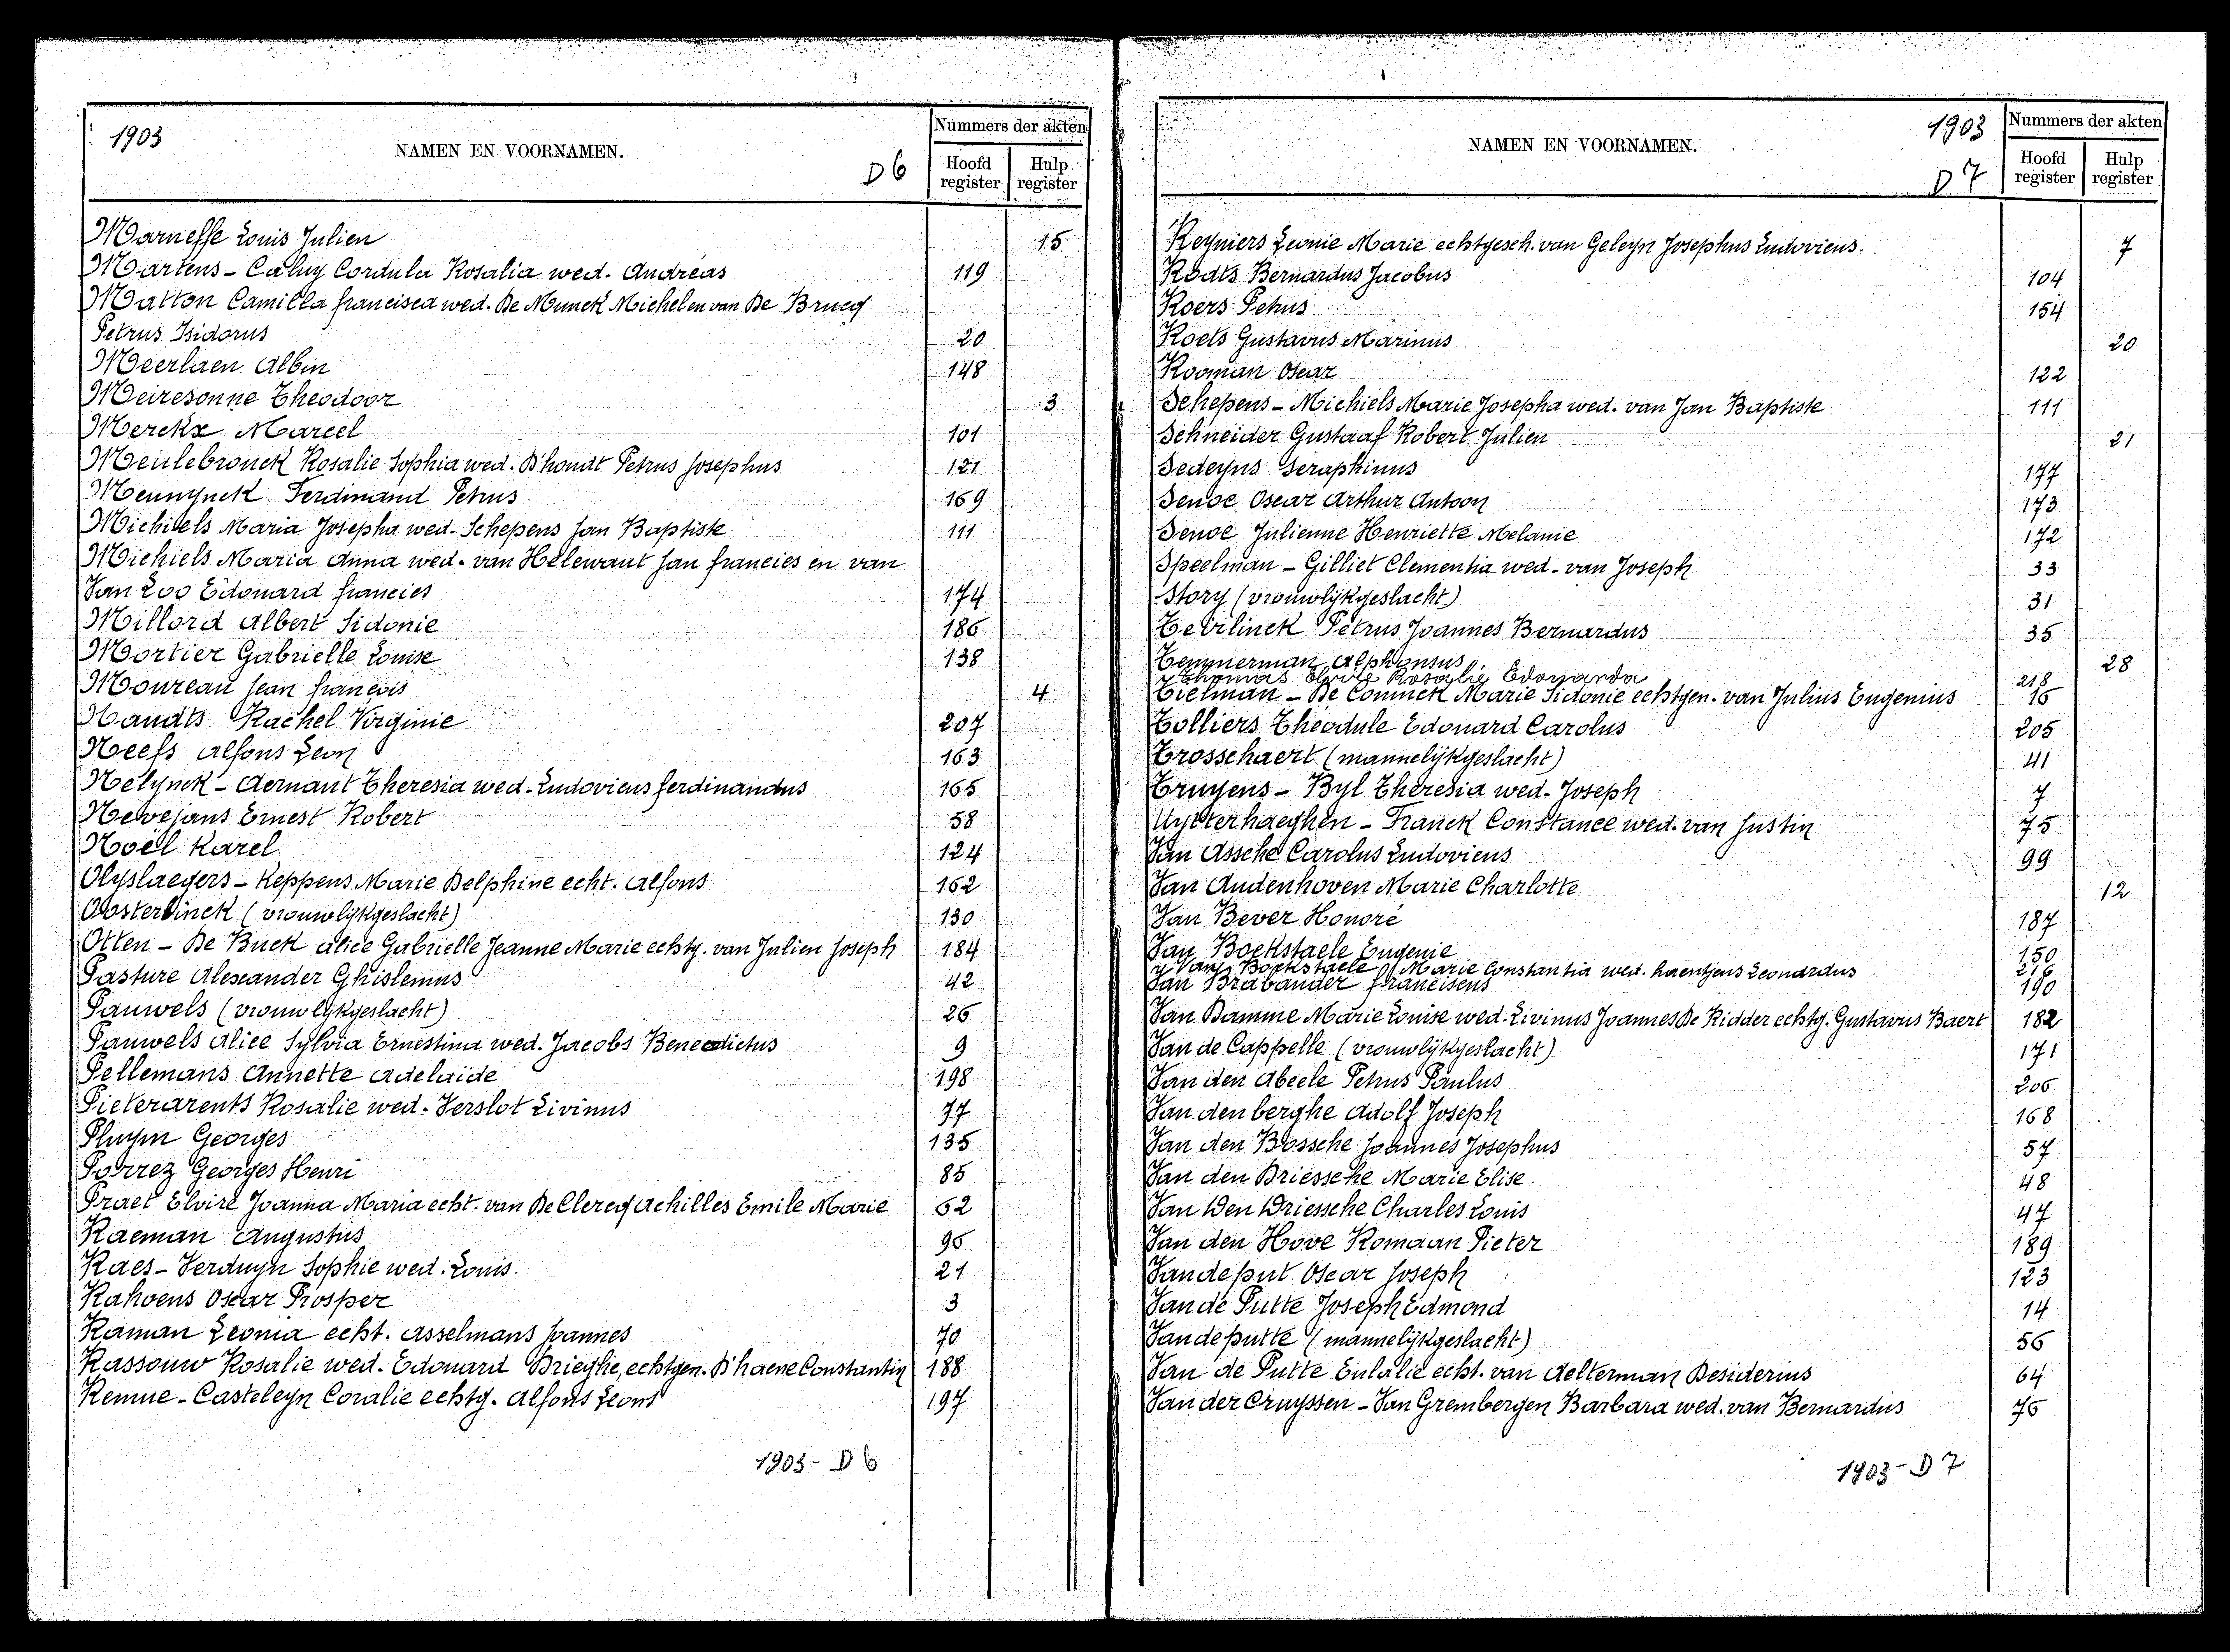 1903
NAMEN EN VOORNAMEN.
D6
Nummers der akten
Hoofd register
Hulp register
Marnesse Louis Julien 15
Martens - Caluy Cordula Rosalia wed. Andréas 119
Matton Camilla francisca wed. De Munck Michel en van De Brucq
Petrus Isidorus 20
Meerlaen Albin 148
Meiresonne Theodoor 3
Merckx Marcel 101
Meulebrouck Rosalie Sophia wed. D'hondt Petrus Josephus 121
Meunynck Ferdinand Petrus 169
Michiels Maria Josepha wed. Schepens Jan Baptiste 111
Michiels Maria Anna wed. van Helewaut Jan francies en van
Van Loo Edouard francies 174
Millord Albert Sidonie 186
Mortier Gabrielle Louise 138
Moureau Jean françois 4
Nandts Rachel Virginie 207
Neefs Alfons Leon 163
Nelynck - Aernaut Theresia wed. Ludovicus ferdinandus 165
Nevejans Ernest Robert 58
Noël Karel 124
Olyslaegers - Keppens Marie Delphine echt. Alfons 162
Oosterlinck (vrouwlijkgeslacht) 130
Otten - De Buck Alice Gabrielle Jeanne Marie echtg. van Julien Joseph 184
Pasture Alexander Ghislenus 42
Pauwels (vrouwlijkgeslacht) 26
Pauwels Alice Sylvia Ernestina wed. Jacobs Benedictus 9
Pellemans Annette Adelaïde 198
Pieterarents Rosalie wed. Verslot Livinus 77
Pluym Georges 135
Porrez Georges Henri 85
Praet Elvire Joanna Maria echt. van De Clercq Achilles Emile Marie 62
Raeman Augustus 96
Raes - Verduyn Sophie wed. Louis. 21
Rahoens Oscar Prosper 3
Raman Leonia echt. Asselmans Joannes 70
Rassouw Rosalie wed. Edouard Brieghe, echtgen. D'haene Constantin 188
Remue - Casteleyn Coralie echtg. Alfons Leons 197
1903 - D6
NAMEN EN VOORNAMEN.
1903
D7
Nummers der akten
Hoofd register
Hulp register
Reyniers Leonie Marie echtgesch. van Geleyn Josephus Ludovicus. 7
Rodts Bernardus Jacobus 104
Roers Petrus 154
Roets Gustavus Marinus 20
Rooman Oscar 122
Schepens - Michiels Marie Josepha wed. van Jan Baptiste 111
Schneider Gustaaf Robert Julien 21
Sedeyns Seraphinus 177
Senoe Oscar Arthur Antoon 173
Senoe Julienne Henriette Melanie 172
Speelman - Gilliet Clementia wed. van Joseph 33
Story (vrouwlijkgeslacht) 31
Teirlinck Petrus Joannes Bernardus 35
Temmerman Alphonsus 28
Thomas Elvire Rosalie Edouarda 218
Tielman - De Coninck Marie Sidonie echtgen. van Julius Eugenius 16
Tolliers Theodule Edouard Carolus 205
Trosschaert (mannelijkgeslacht) 41
Truyens - Byl Theresia wed. Joseph 7
Uytterhaeghen - Franck Constance wed. van Justin 75
Van Assche Carolus Ludovicus 99
Van Audenhoven Marie Charlotte 12
Van Bever Honoré 187
Van Bockstaele Eugenie 150
Van Bockstaele Marie Constantia wed. haentjens Leonardus 216
Van Brabander franciscus 190
Van Damme Marie Louise wed. Livinus Joannes De Ridder echtg. Gustavus Baert 182
Van de Cappelle (vrouwlijkgeslacht) 171
Van den Abeele Petrus Paulus 206
Van den berghe Adolf Joseph 168
Van den Bossche Joannes Josephus 57
Van den Driessche Marie Elise. 48
Van Den Driessche Charles Louis 47
Van den Hove Romaan Pieter 189
Vandeput Oscar Joseph 123
Van de Putte Joseph Edmond 14
Vandeputte (mannelijkgeslacht) 56
Van de Putte Eulalie echt. van Aelterman Desiderius 64
Van der Cruyssen - Van Grembergen Barbara wed. van Bernardus 76
1903 - D7